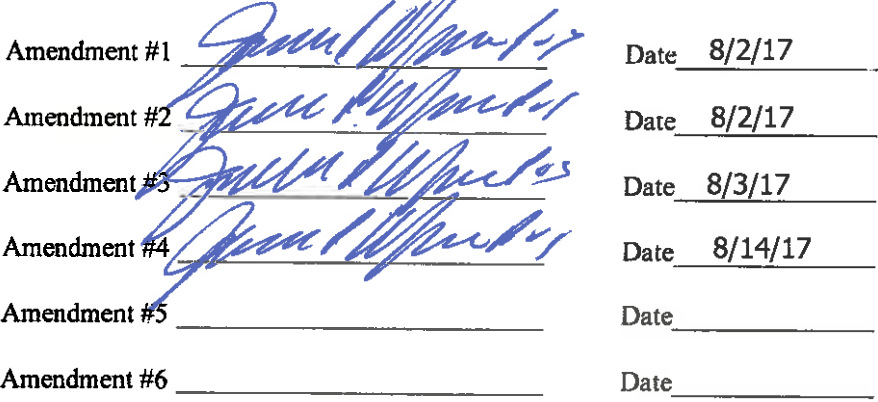 Amendment #1 Date 8/2/17
Amendment #2 Date 8/2/17
Amendment #3 Date 8/3/17
Amendment #4 Date 8/14/17
Amendment #5 Date
Amendment #6 Date